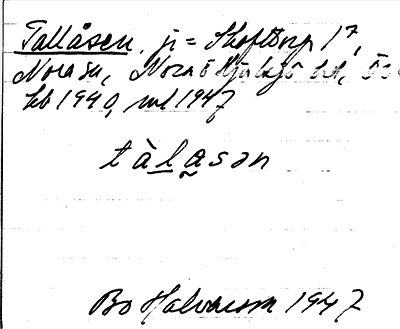 Tallåsen, ji = Skofttorp 1⁷,
Nora sn, Nora o Hjulsjö bd, Ö
kb 1940, ml 1947
tàlasən
Bo Halvarsson 1947